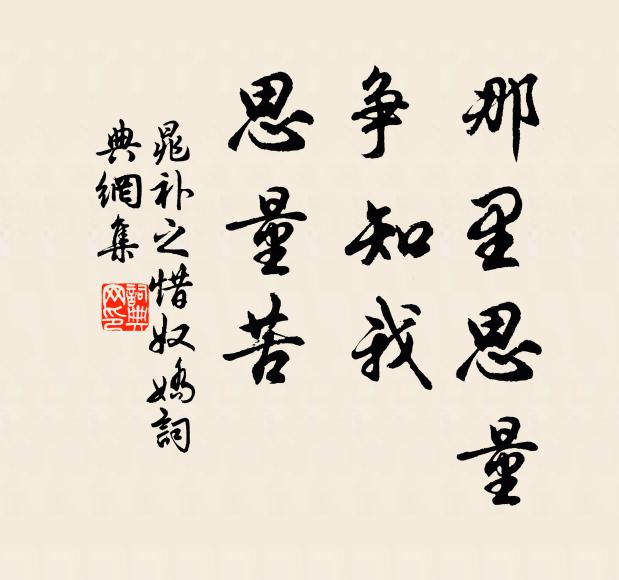 那里思量
争知我
思量苦
晁补之惜奴娇詞
典網集
詞典网印